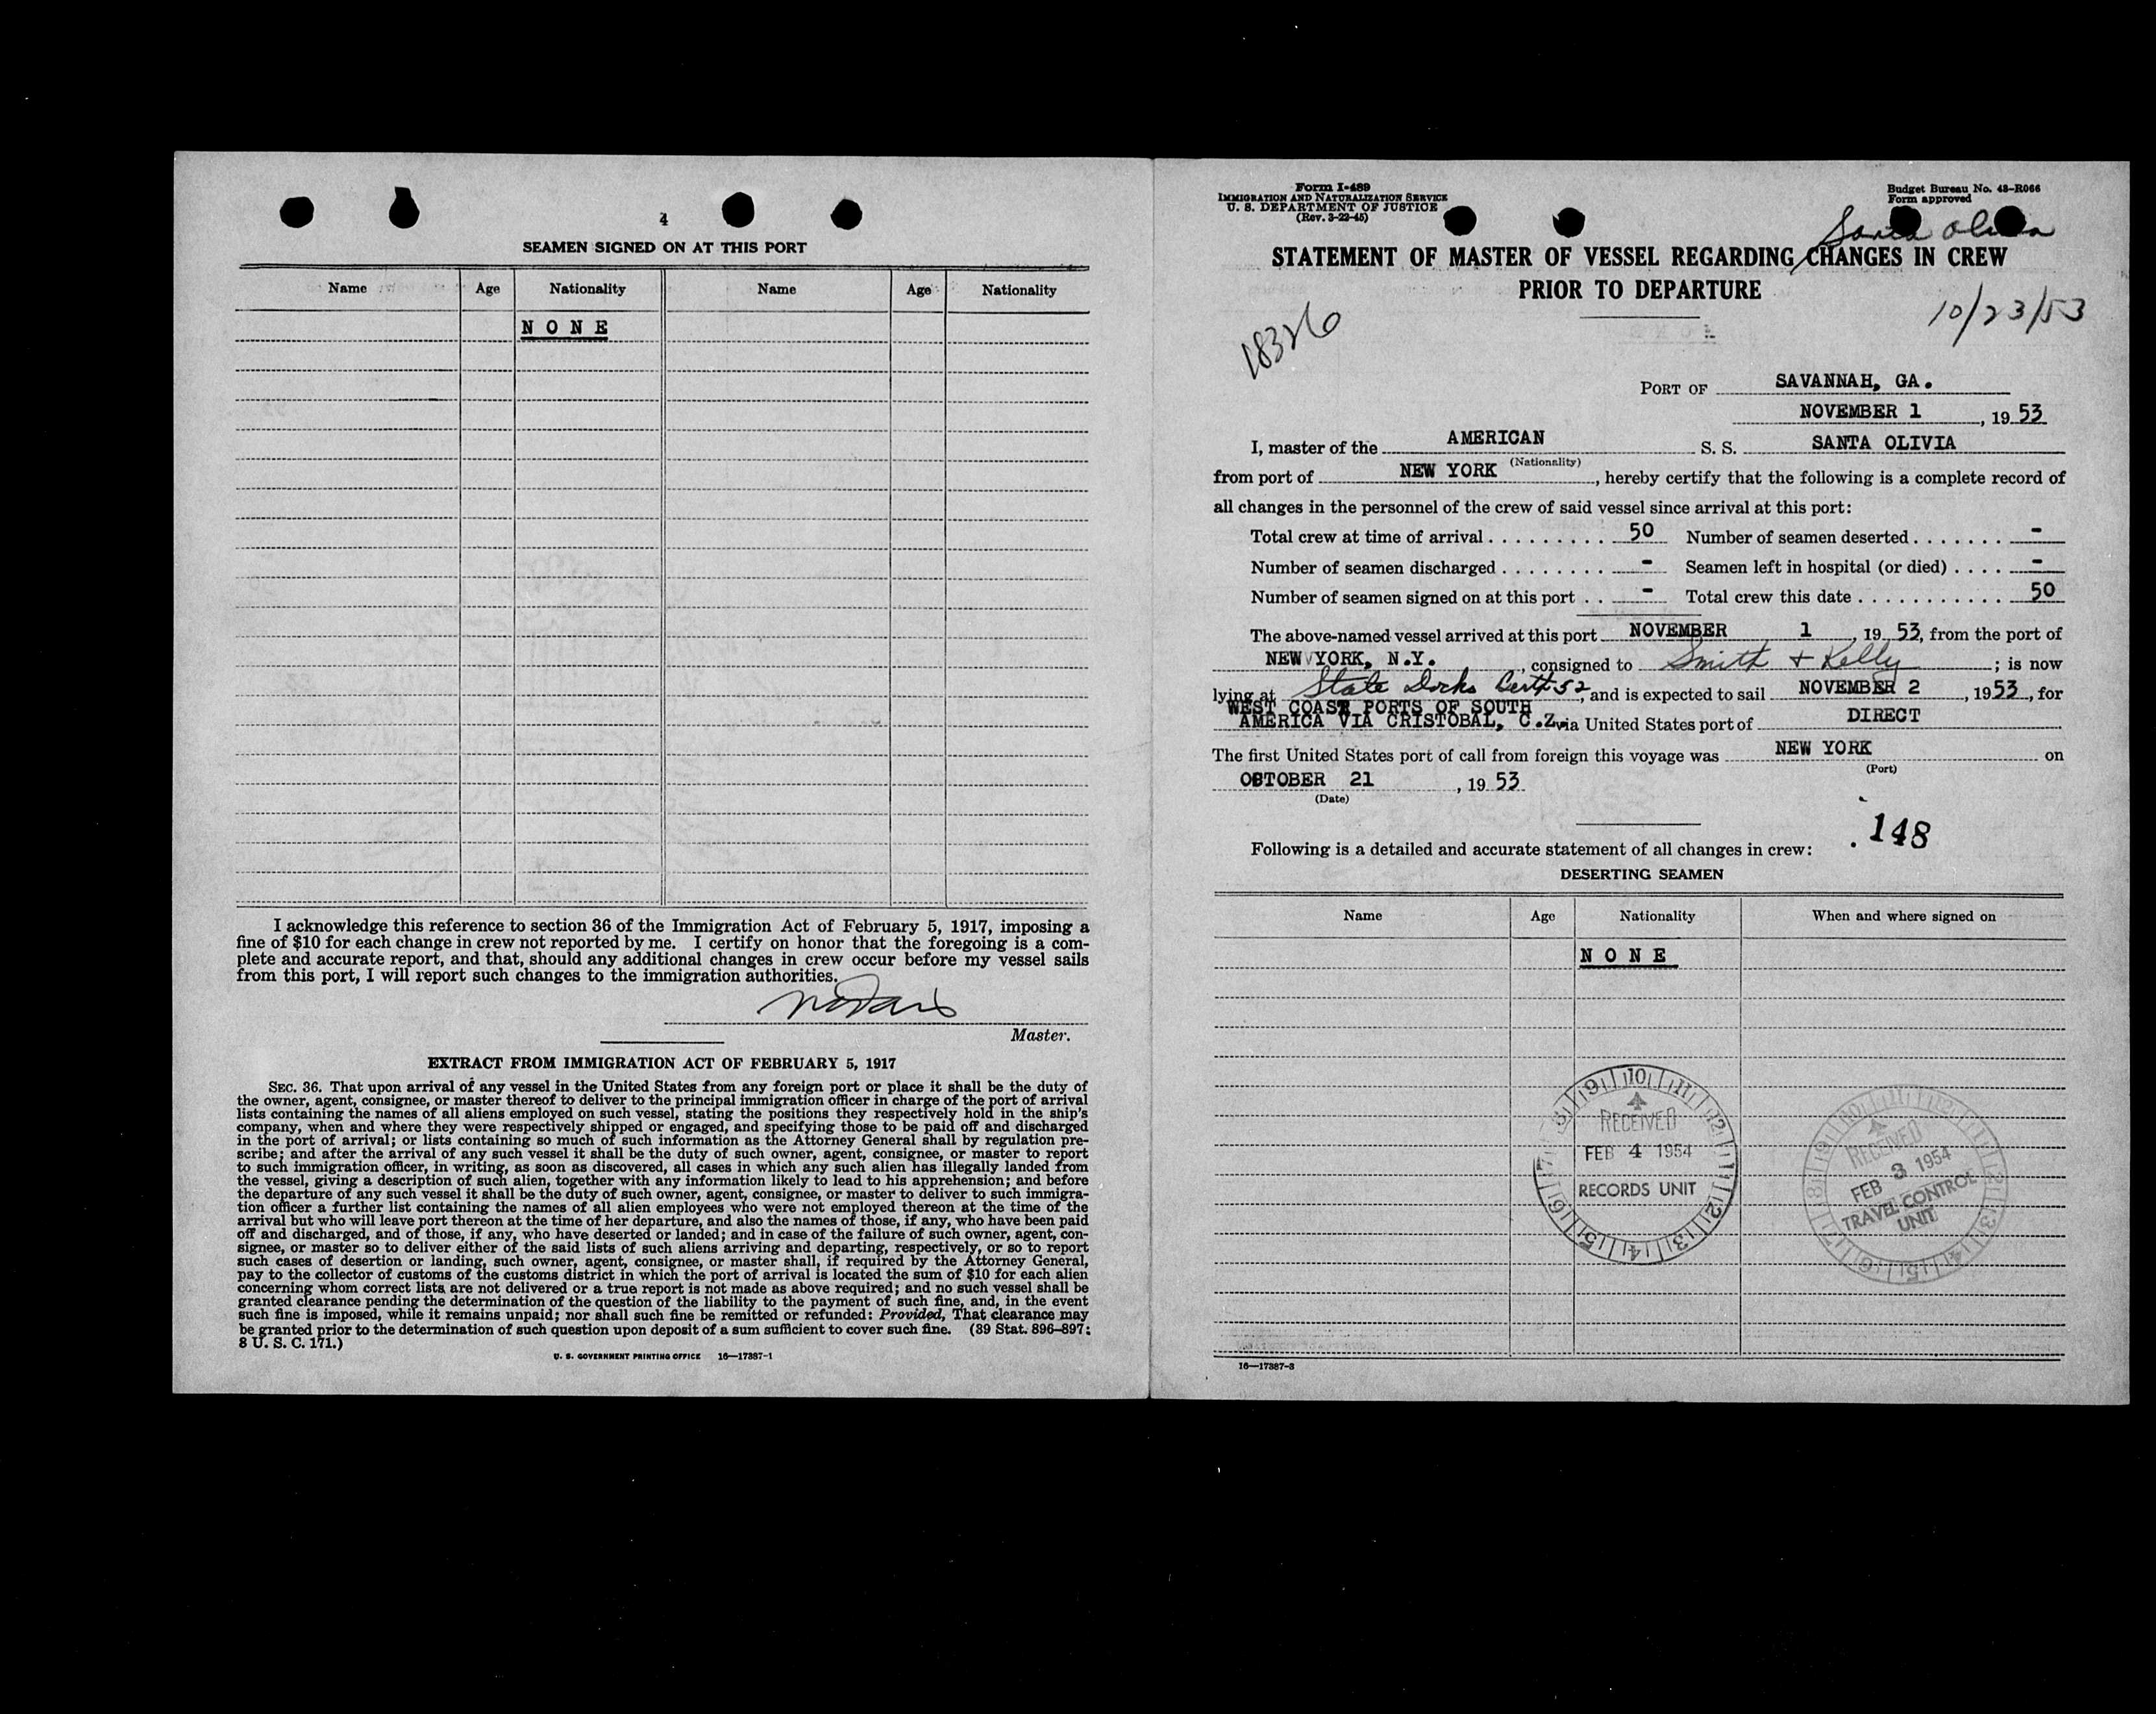 4
SEAMEN SIGNED ON AT THIS PORT
Name Age Nationality Name Age Nationality
N O N E
I acknowledge this reference to section 36 of the Immigration Act of February 5, 1917, imposing a
fine of $10 for each change in crew not reported by me. I certify on honor that the foregoing is a com-
plete and accurate report, and that, should any additional changes in crew occur before my vessel sails
from this port, I will report such changes to the immigration authorities.
Master.
EXTRACT FROM IMMIGRATION ACT OF FEBRUARY 5, 1917
SEC. 36. That upon arrival of any vessel in the United States from any foreign port or place it shall be the duty of
the owner, agent, consignee, or master thereof to deliver to the principal immigration officer in charge of the port of arrival
lists containing the names of all aliens employed on such vessel, stating the positions they respectively hold in the ship's
company, when and where they were respectively shipped or engaged, and specifying those to be paid off and discharged
in the port of arrival; or lists containing so much of such information as the Attorney General shall by regulation pre-
scribe; and after the arrival of any such vessel it shall be the duty of such owner, agent, consignee, or master to report
to such immigration officer, in writing, as soon as discovered, all cases in which any such alien has illegally landed from
the vessel, giving a description of such alien, together with any information likely to lead to his apprehension; and before
the departure of any such vessel it shall be the duty of such owner, agent, consignee, or master to deliver to such immigra-
tion officer a further list containing the names of all alien employees who were not employed thereon at the time of the
arrival but who will leave port thereon at the time of her departure, and also the names of those, if any, who have been paid
off and discharged, and of those, if any, who have deserted or landed; and in case of the failure of such owner, agent, con-
signee, or master so to deliver either of the said lists of such aliens arriving and departing, respectively, or so to report
such cases of desertion or landing, such owner, agent, consignee, or master shall, if required by the Attorney General,
pay to the collector of customs of the customs district in which the port of arrival is located the sum of $10 for each alien
concerning whom correct lists are not delivered or a true report is not made as above required; and no such vessel shall be
granted clearance pending the determination of the question of the liability to the payment of such fine, and, in the event
such fine is imposed, while it remains unpaid; nor shall such fine be remitted or refunded: Provided, That clearance may
be granted prior to the determination of such question upon deposit of a sum sufficient to cover such fine. (39 Stat. 896–897;
8 U. S. C. 171.)
U. S. GOVERNMENT PRINTING OFFICE 16—17387-1
Form I-489
IMMIGRATION AND NATURALIZATION SERVICE
U. S. DEPARTMENT OF JUSTICE
(Rev. 3-22-45)
Budget Bureau No. 43-R066
Form approved
Santa Olivia
STATEMENT OF MASTER OF VESSEL REGARDING CHANGES IN CREW
PRIOR TO DEPARTURE
10/23/53
18326
PORT OF SAVANNAH, GA.
NOVEMBER 1, 1953
I, master of the AMERICAN S. S. SANTA OLIVIA
(Nationality)
from port of NEW YORK, hereby certify that the following is a complete record of
all changes in the personnel of the crew of said vessel since arrival at this port:
Total crew at time of arrival . . . . . . . . . 50 Number of seamen deserted . . . . . . . -
Number of seamen discharged . . . . . . . . - Seamen left in hospital (or died) . . . . -
Number of seamen signed on at this port . . - Total crew this date . . . . . . . . . . . 50
The above-named vessel arrived at this port NOVEMBER 1, 1953, from the port of
NEW YORK, N.Y., consigned to Smith + Kelly; is now
lying at State Docks Berth 52, and is expected to sail NOVEMBER 2, 1953, for
WEST COAST PORTS OF SOUTH
AMERICA VIA CRISTOBAL, C.Z. via United States port of DIRECT
The first United States port of call from foreign this voyage was NEW YORK on
(Port)
OCTOBER 21, 1953
(Date)
148
Following is a detailed and accurate statement of all changes in crew:
DESERTING SEAMEN
Name Age Nationality When and where signed on
N O N E
RECEIVED
FEB 4 1954
RECORDS UNIT
RECEIVED
FEB 3 1954
TRAVEL CONTROL
UNIT
16—17387-3